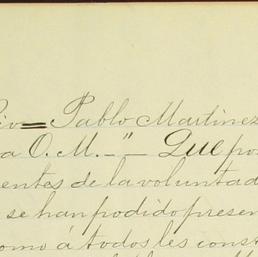 Pablo Martinez
a O. M. — " — Que
entes de la voluntad
se han podido presen
como á todos les const